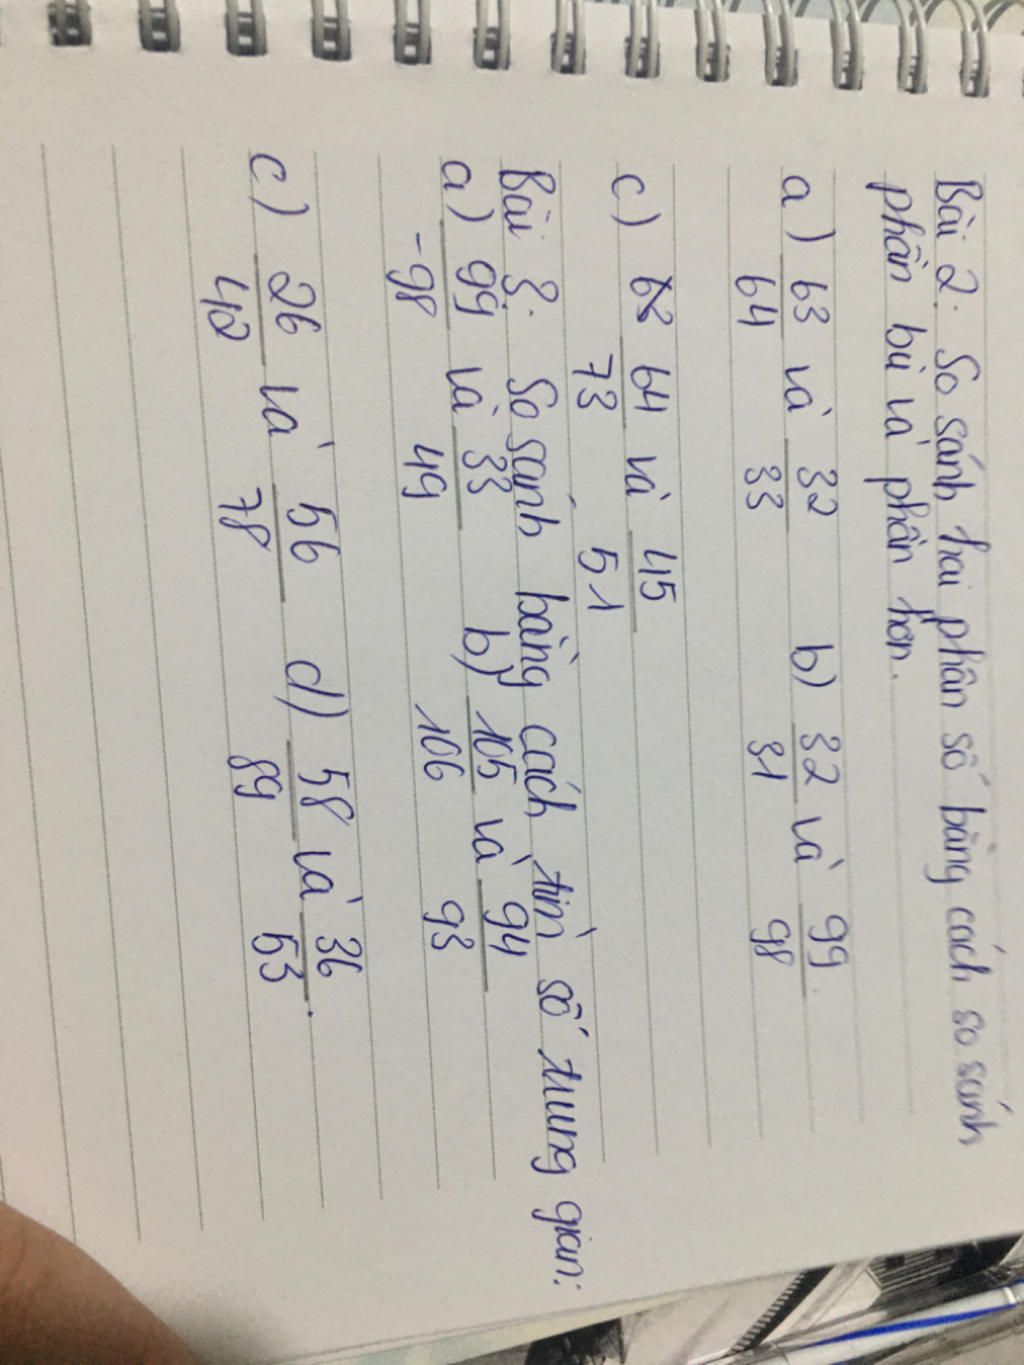 Bài 2. So sánh hai phân số bằng cách so sánh
phần bù và phần hơn.
a) 63/64 và 32/33 b) 32/31 và 99/98
c) 64/73 và 45/51
Bài 3. So sánh bằng cách tìm số trung gian:
a) 99/-98 và 33/49 b) 105/106 và 94/93
c) 26/42 và 56/78 d) 58/89 và 36/53.